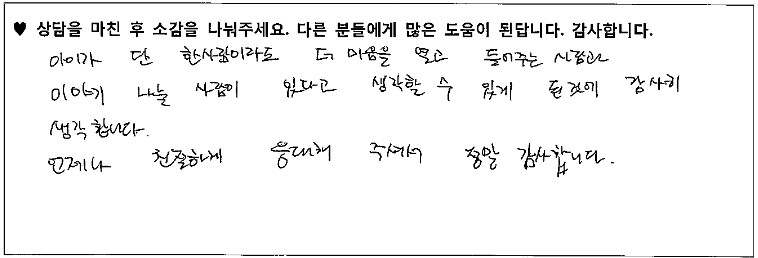 ♥ 상담을 마친 후 소감을 나눠주세요. 다른 분들에게 많은 도움이 된답니다. 감사합니다.
아이가 단 한사람이라도 더 마음을 열고 들어주는 사람과
이야기 나눌 사람이 있다고 생각할 수 있게 된것에 감사히
생각합니다.
언제나 친절하게 응대해 주셔서 정말 감사합니다.